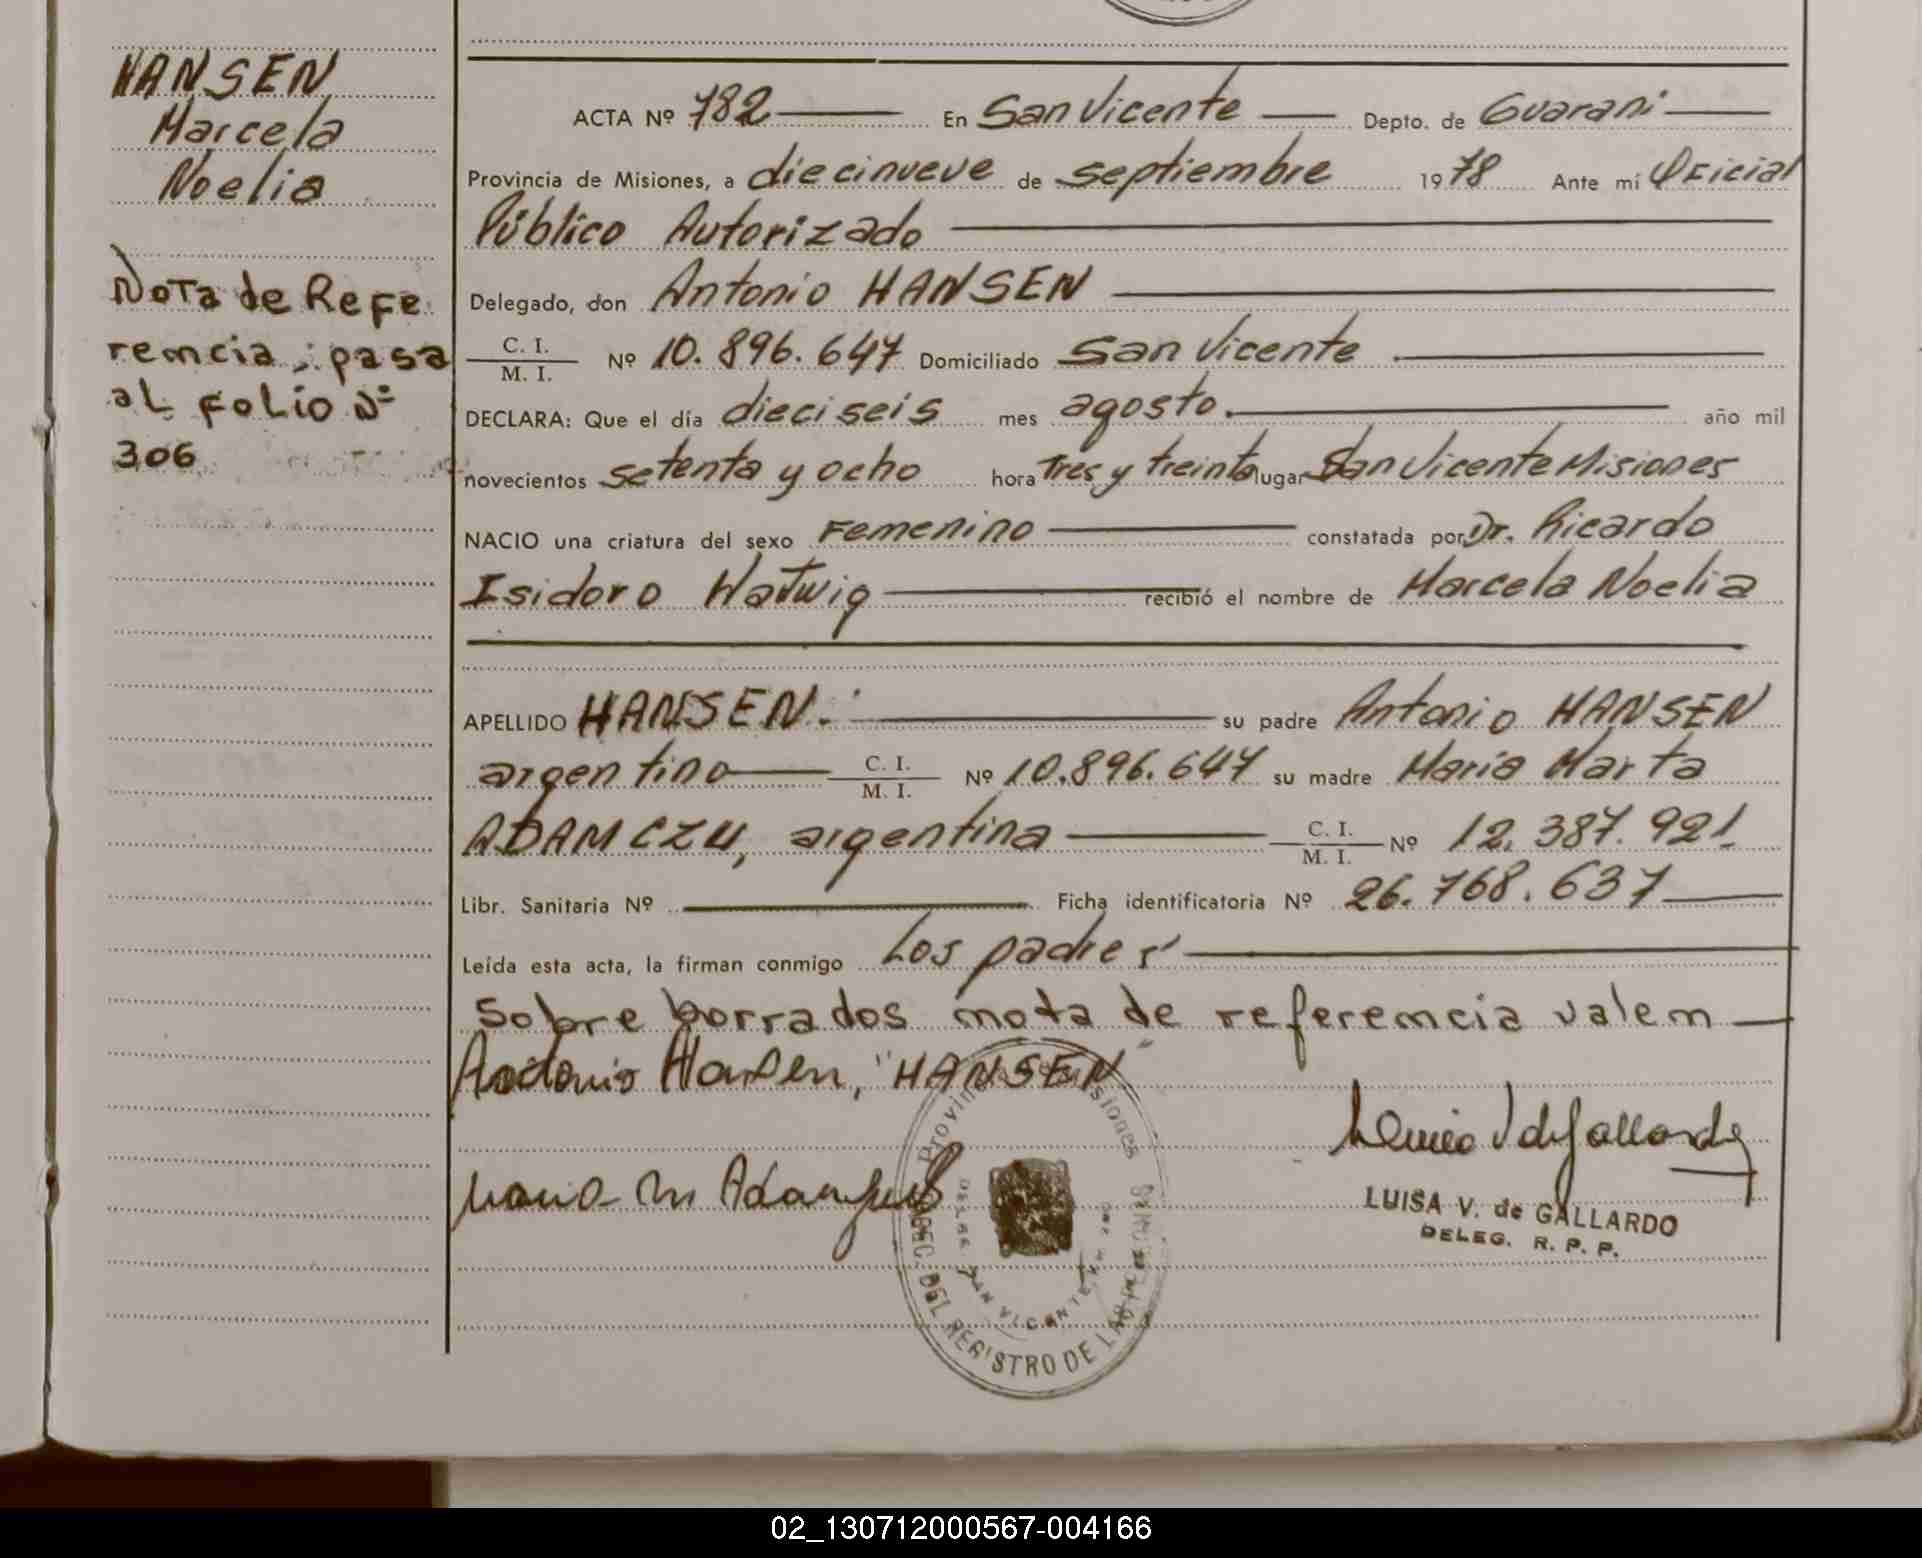 HANSEN
Marcela
Noelia
Nota de Refe
remcia, pasa
al Folio Nº
306
ACTA Nº 782 En San Vicente Depto. de Guarani
Provincia de Misiones, a diecinueve de septiembre 1978 Ante mí Oficial
Público Autorizado
Delegado, don Antonio HANSEN
C. I. / M. I. Nº 10.896.647 Domiciliado San Vicente
DECLARA: Que el día dieciseis mes agosto. año mil
novecientos setenta y ocho hora tres y treinta lugar San Vicente Misiones
NACIO una criatura del sexo Femenino constatada por Dr. Ricardo
Isidoro Hatwig recibió el nombre de Marcela Noelia
APELLIDO HANSEN. su padre Antonio HANSEN
argentino C. I. / M. I. Nº 10.896.647 su madre Maria Marta
ADAMCZU, argentina C. I. / M. I. Nº 12.387.921
Libr. Sanitaria Nº Ficha identificatoria Nº 26.768.637
Leída esta acta, la firman conmigo Los padres
Sobre borrados mota de referemcia valem
Antonio Hansen, "HANSEN"
Maria M
LUISA V. de GALLARDO
DELEG. R. P. P.
Provincia de Misiones
DEL REGISTRO DE LAS
SAN VICENTE
02_130712000567-004166